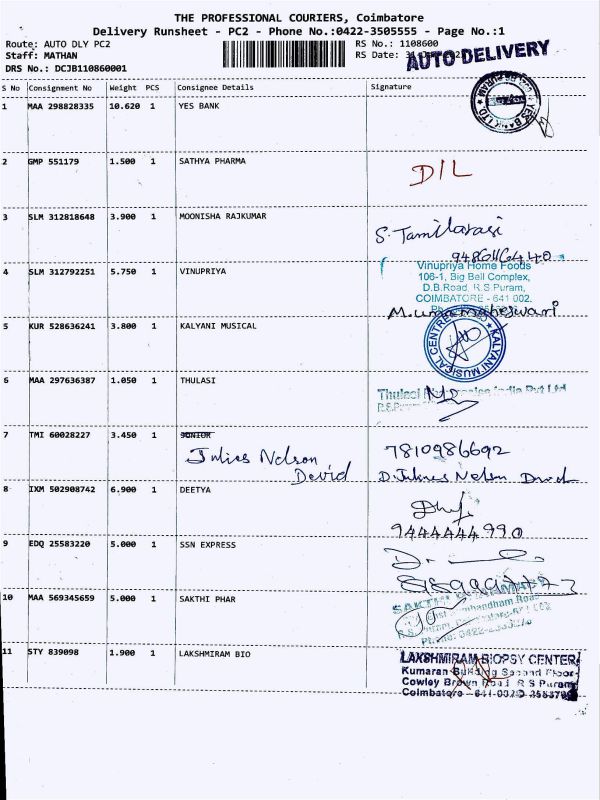 THE PROFESSIONAL COURIERS, Coimbatore
Delivery Runsheet - PC2 - Phone No.:0422-3505555 - Page No.:1
Route: AUTO DLY PC2
RS No.: 1108600
Staff: MATHAN
RS Date:
AUTO DELIVERY
DRS No.: DCJB110860001
S No Consignment No Weight PCS Consignee Details Signature
1 MAA 298828335 10.620 1 YES BANK
YES BANK LTD
2 GMP 551179 1.500 1 SATHYA PHARMA
D/L
3 SLM 312818648 3.900 1 MOONISHA RAJKUMAR
S. Tamilarasi
9486116440
4 SLM 312792251 5.750 1 VINUPRIYA
Vinupriya Home Foods
106-1, Big Bell Complex,
D.B.Road, R.S.Puram,
COIMBATORE - 641 002.
M. uma maheswari
5 KUR 528636241 3.800 1 KALYANI MUSICAL
KALYANI MUSICAL CENTRE
6 MAA 297636387 1.050 1 THULASI
Thulasi India Pvt Ltd
7 TMI 60028227 3.450 1 JUNIOR
Julies Nelson
David
7810986692
D. Julines Nelson David
8 IXM 502908742 6.900 1 DEETYA
9444444990
9 EDQ 25583220 5.000 1 SSN EXPRESS
10 MAA 569345659 5.000 1 SAKTHI PHAR
SAKTHI
11 STY 839098 1.900 1 LAKSHMIRAM BIO
LAKSHMIRAM BIOPSY CENTER
Kumaran Building Second Floor
Cowley Brown Road R S Puram
Coimbatore